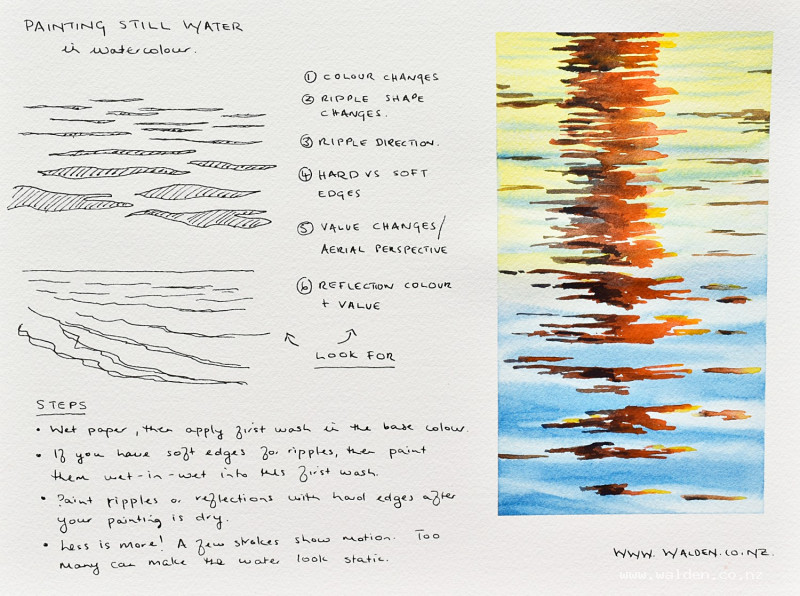 PAINTING STILL WATER
in watercolour.
① COLOUR CHANGES
② RIPPLE SHAPE
CHANGES.
③ RIPPLE DIRECTION.
④ HARD VS SOFT
EDGES
⑤ VALUE CHANGES/
AERIAL PERSPECTIVE
⑥ REFLECTION COLOUR
+ VALUE
LOOK FOR
STEPS
• Wet paper, then apply first wash in the base colour.
• If you have soft edges for ripples, then paint
them wet-in-wet into this first wash.
• Paint ripples or reflections with hard edges after
your painting is dry.
• Less is more! A few strokes show motion. Too
many can make the water look static.
WWW.WALDEN.CO.NZ.
www.walden.co.nz